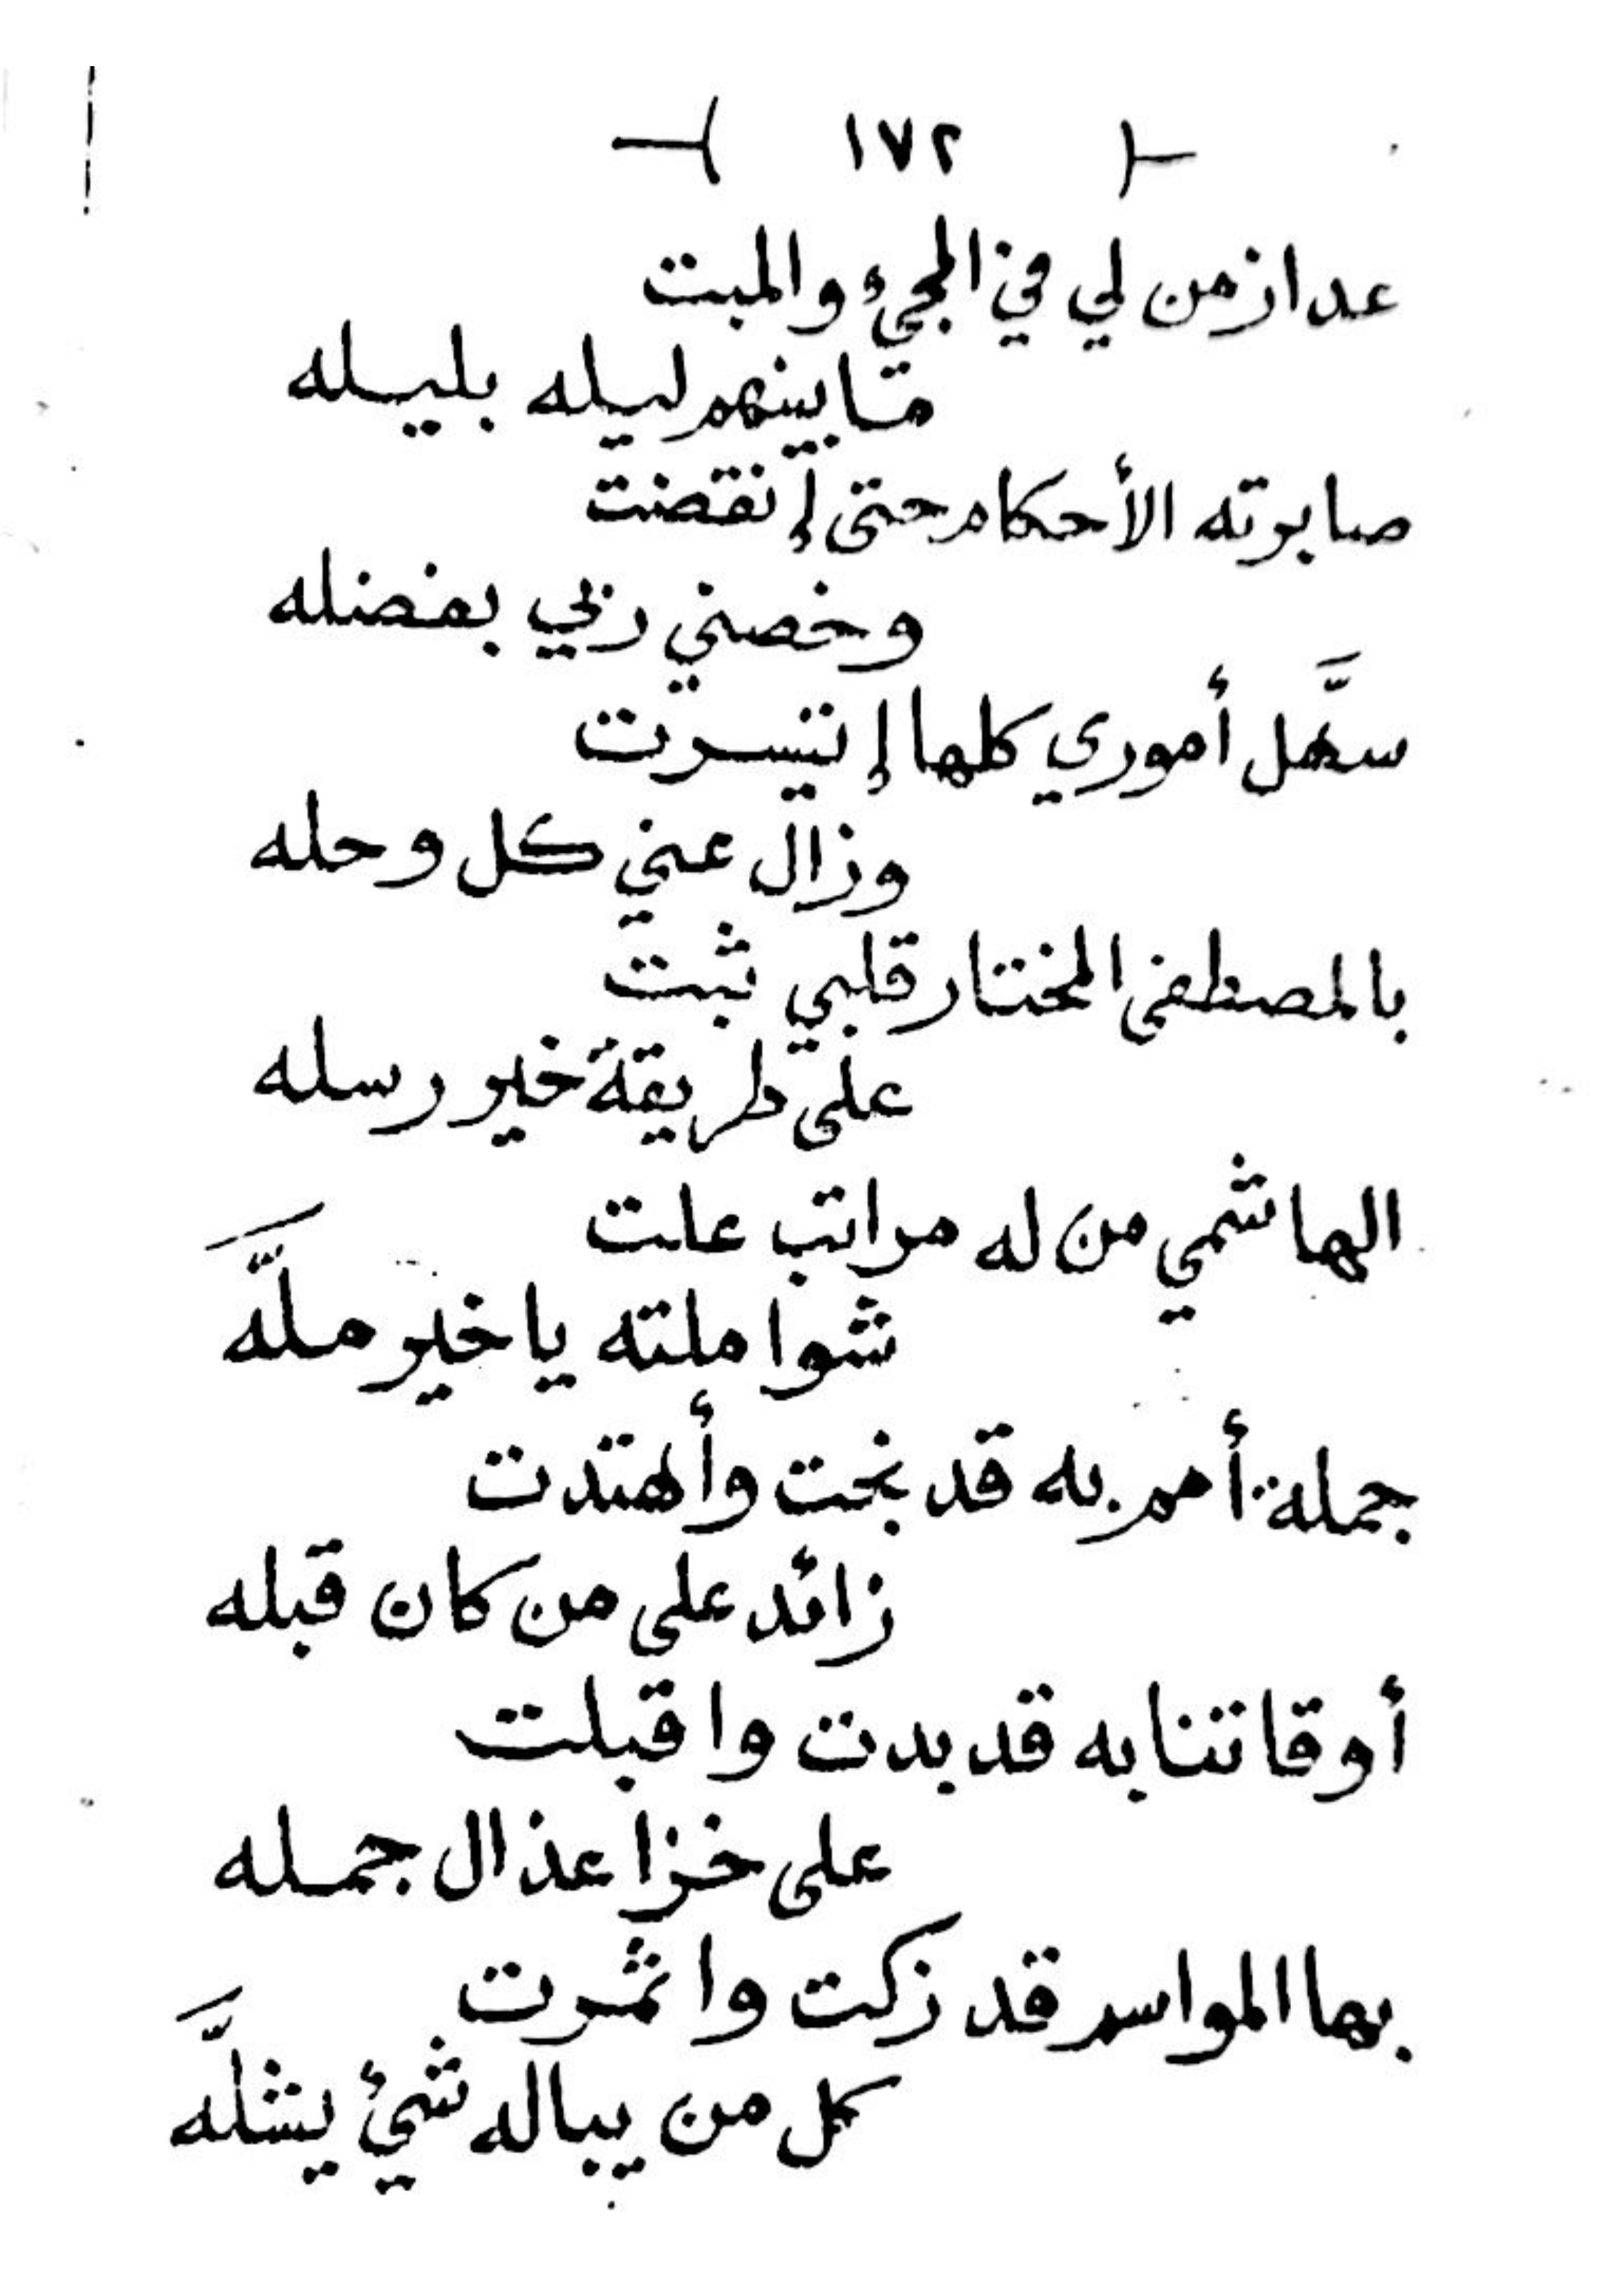 -( ١٧٢ )-
عدا زمن لي في المجيء والمبت
ما بينهم ليله بليله
صابرته الأحكام حتى إنقضت
وخصني ربي بفضله
سهَّل أموري كلها إتيسرت
وزال عني كل وحله
بالمصطفى المختار قلبي ثبت
على طريقة خير رسله
الهاشمي من له مراتب علت
شوا ملته يا خير ملَّه
جملة أمم به قد نجت وأهتدت
زائد على من كان قبله
أوقاتنا به قد بدت واقبلت
على خزا عذال جمله
بها المواسم قد زكت واثمرت
كل من يباله شيئ يشلَّه